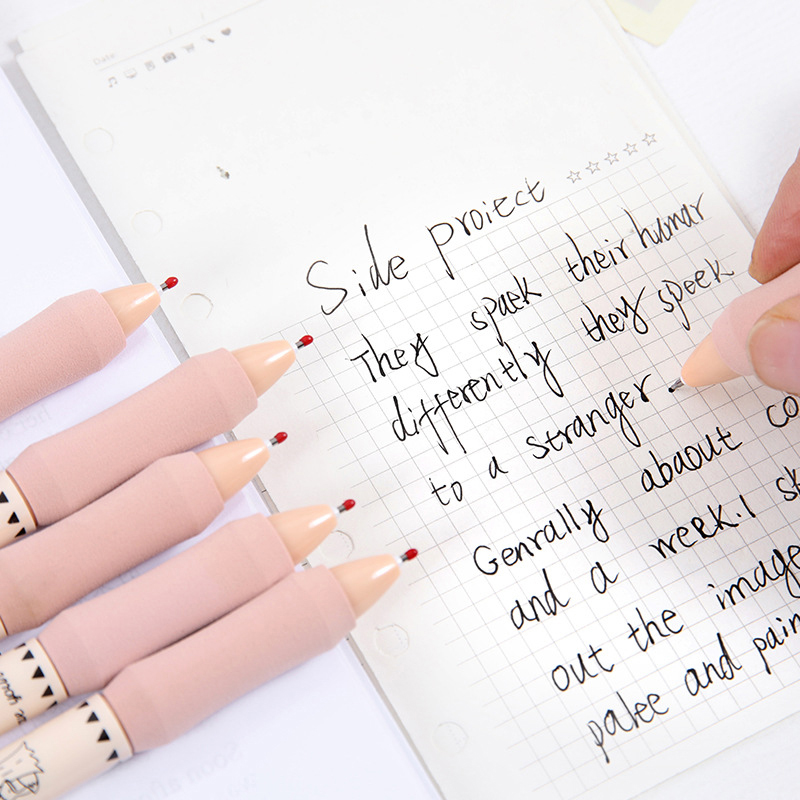 Date:
Side proiect
They spaek their humar
differently they speek
to a stranger.
Genrally abaout co
and a week.I sk
out the image
palee and pain